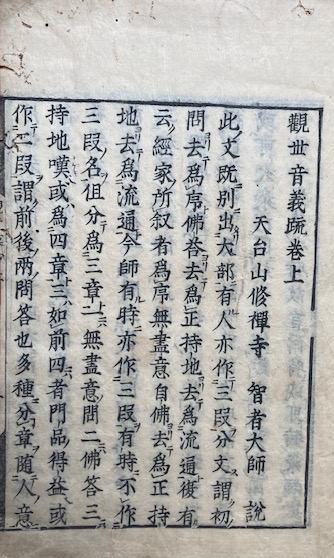 觀世音義疏卷上
天台山修禪寺　智者大師　說
此文既別出大部有人亦作三段分文謂初
問去為序佛荅去為正持地去為流通復有
云經家所叙者為序無盡意自佛去為正持
地去為流通今師有時亦作三段有時不作
三段名但分為三章一無盡意問二佛答三
持地嘆或為四章三如前四者聞品得益或
作二段謂前後兩問答也多種分章隨人意